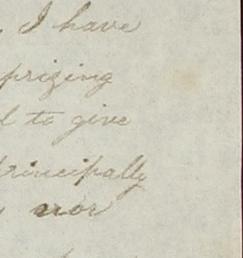 , I have
prizing
d to give
principally
nor